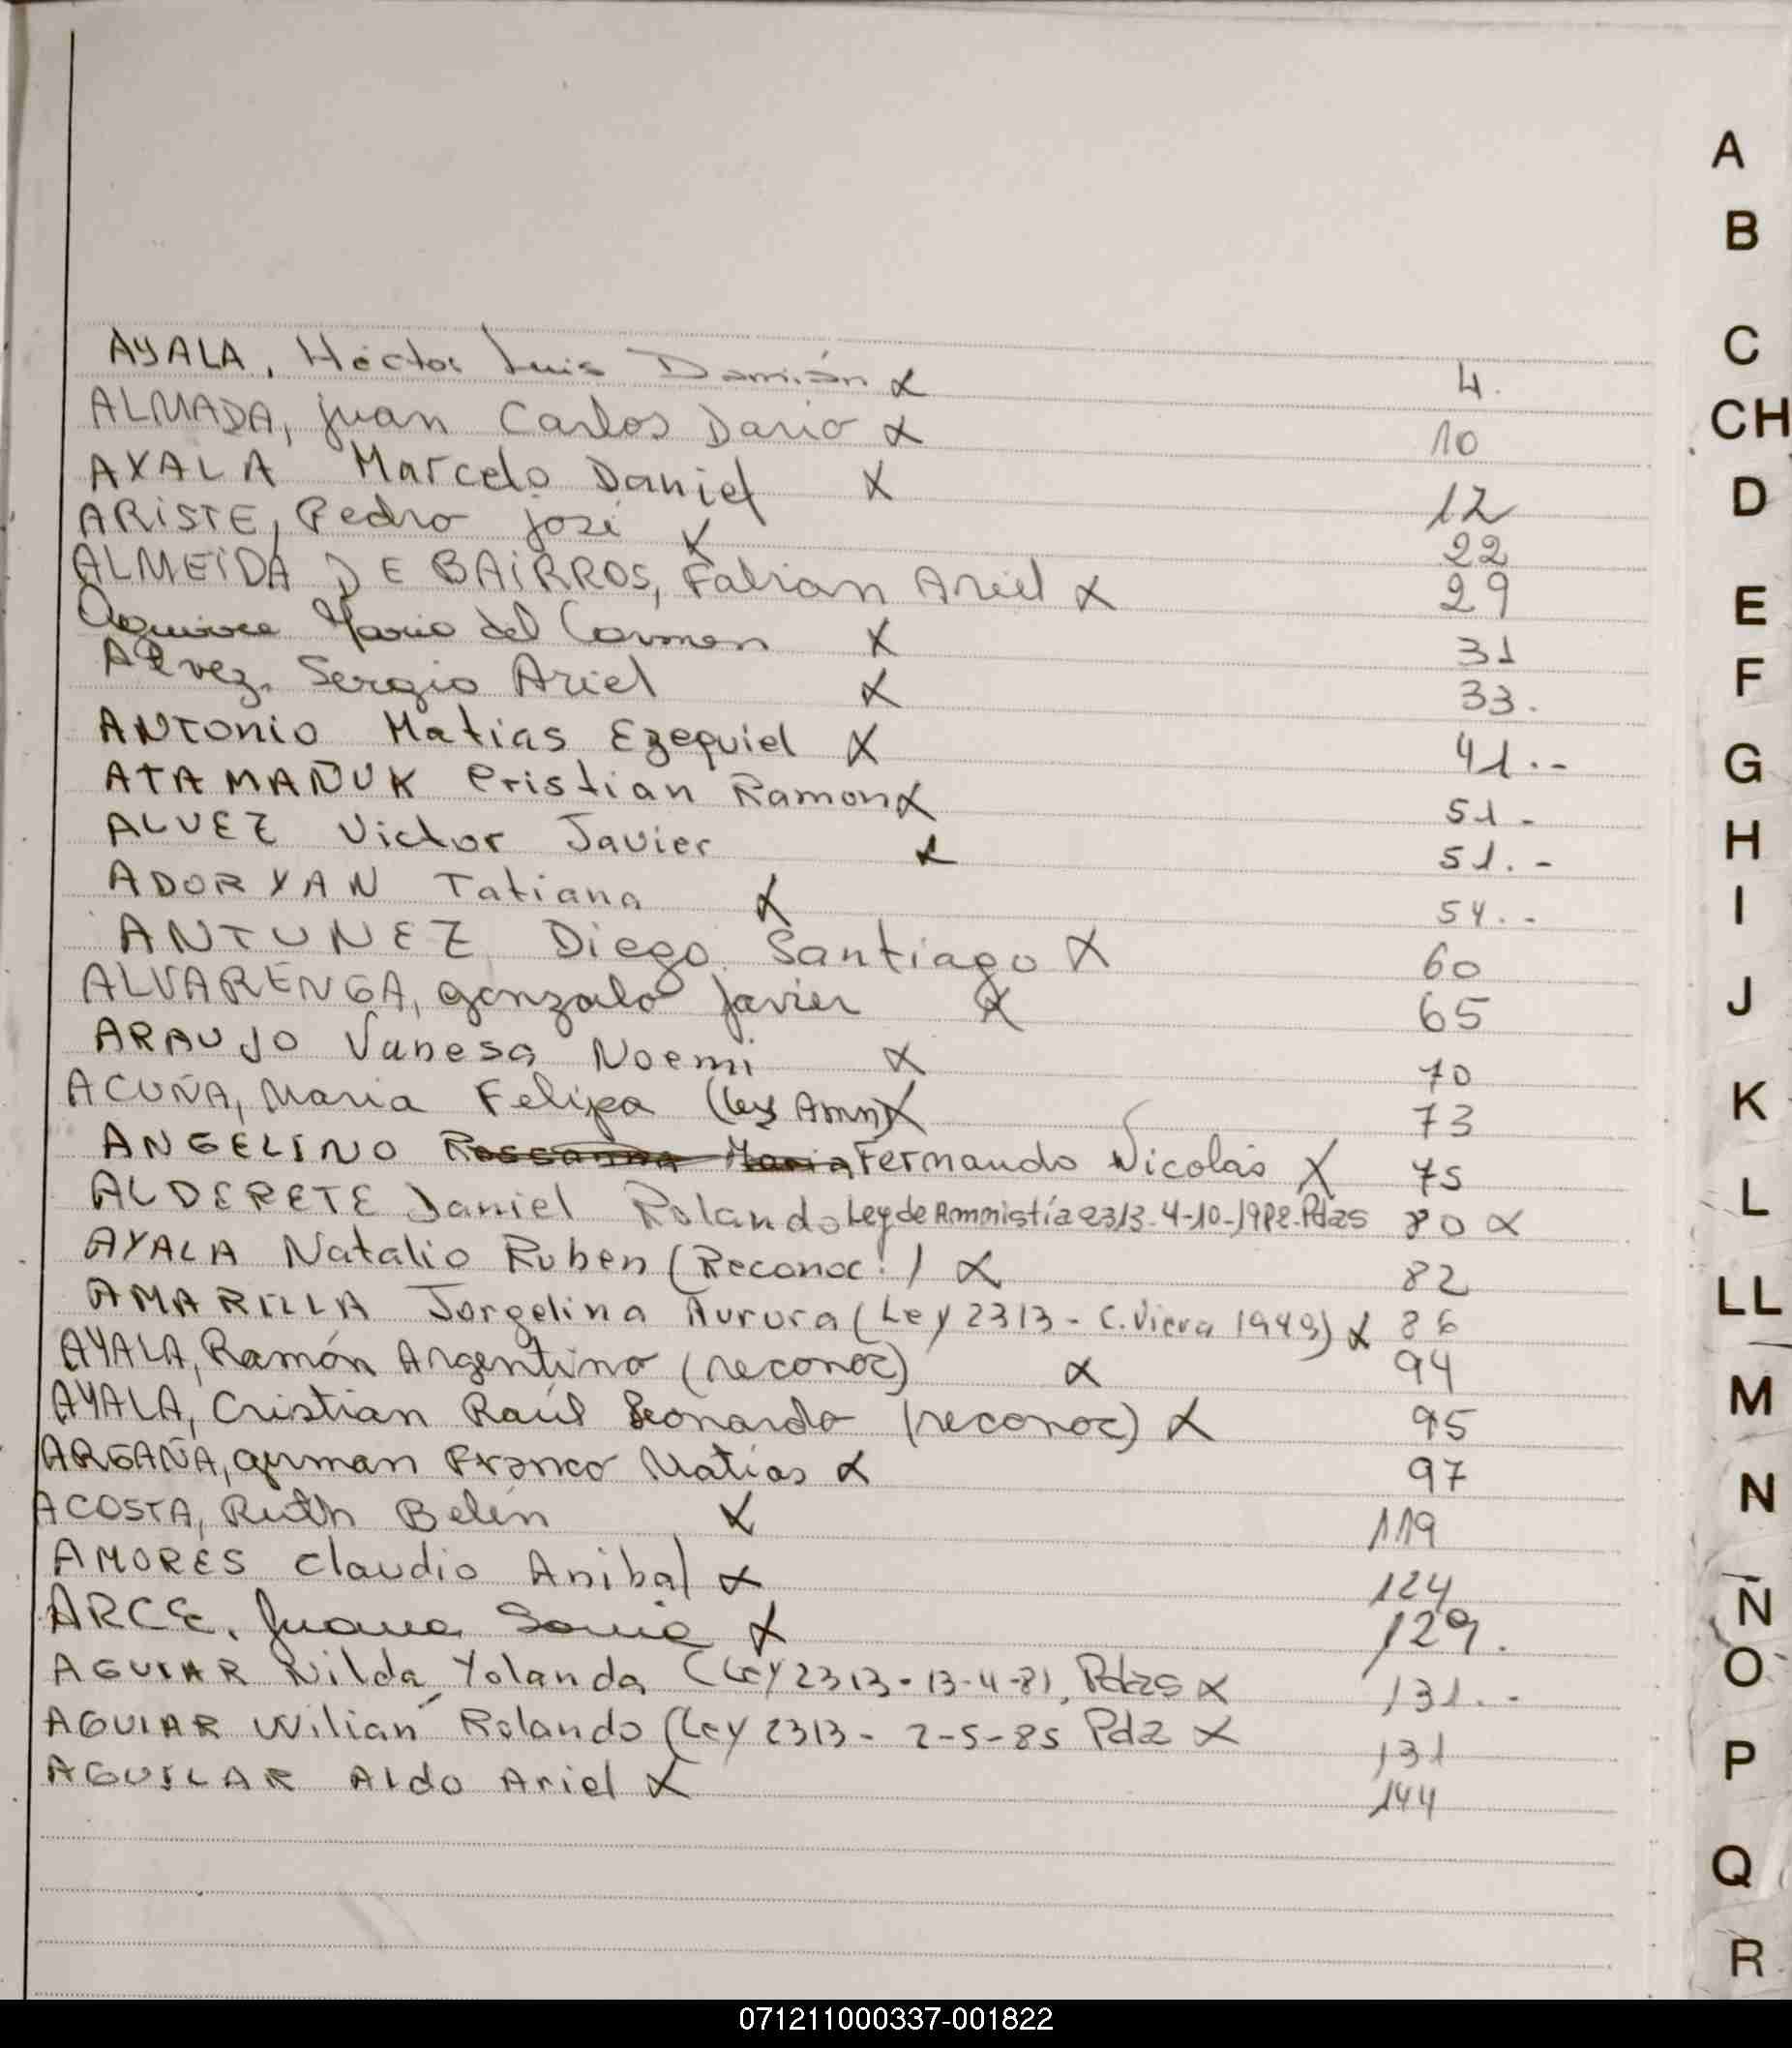 AYALA, Héctor Luis Damián x 4.
ALMADA, Juan Carlos Dario x 10
AYALA Marcelo Daniel x 12
ARiSTE, Pedro José x 22
ALMEiDA DE BAiRROS, Fabian Ariel x 29
Aguirre Maria del Carmen x 31
Alvez, Sergio Ariel x 33.
ANTONIO Matias Ezequiel x 41.-
ATAMAÑUK Cristian Ramon x 51.-
ALVEZ Victor Javier x 51.-
ADORYAN Tatiana x 54.-
ANTUNEZ Diego Santiago x 60
ALVARENGA, Gonzalo Javier x 65
ARAUJO Vanesa Noemi x 70
ACUÑA, Maria Felipa (Ley Amn) x 73
ANGELINO Rossanna Maria Fernando Nicolás x 75
ALDERETE Daniel Rolando Ley de Amnistía 2313-4-10-1982-Pdas 80 x
AYALA Natalio Ruben (Reconoc.) x 82
AMARILLA Jorgelina Aurora (Ley 2313 - C. Viera 1949) x 86
AYALA, Ramón Argentino (reconoc) x 94
AYALA, Cristian Raúl Leonardo (reconoc) x 95
ARGAÑA, German Franco Matías x 97
ACOSTA, Ruth Belén x 119
AMORES Claudio Anibal x 124
ARCE, Juana Sonia x 129.
AGUIAR Nilda Yolanda (Ley 2313-13-4-81, Pdas x 131.-
AGUIAR Wilian Rolando (Ley 2313 - 2-5-85 Pda x 131
AGUILAR Aldo Ariel x 144
A
B
C
CH
D
E
F
G
H
I
J
K
L
LL
M
N
Ñ
O
P
Q
R
071211000337-001822